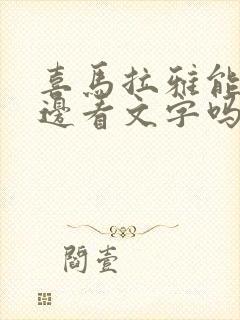 喜馬拉雅能
邊看文字嗎
閻壹